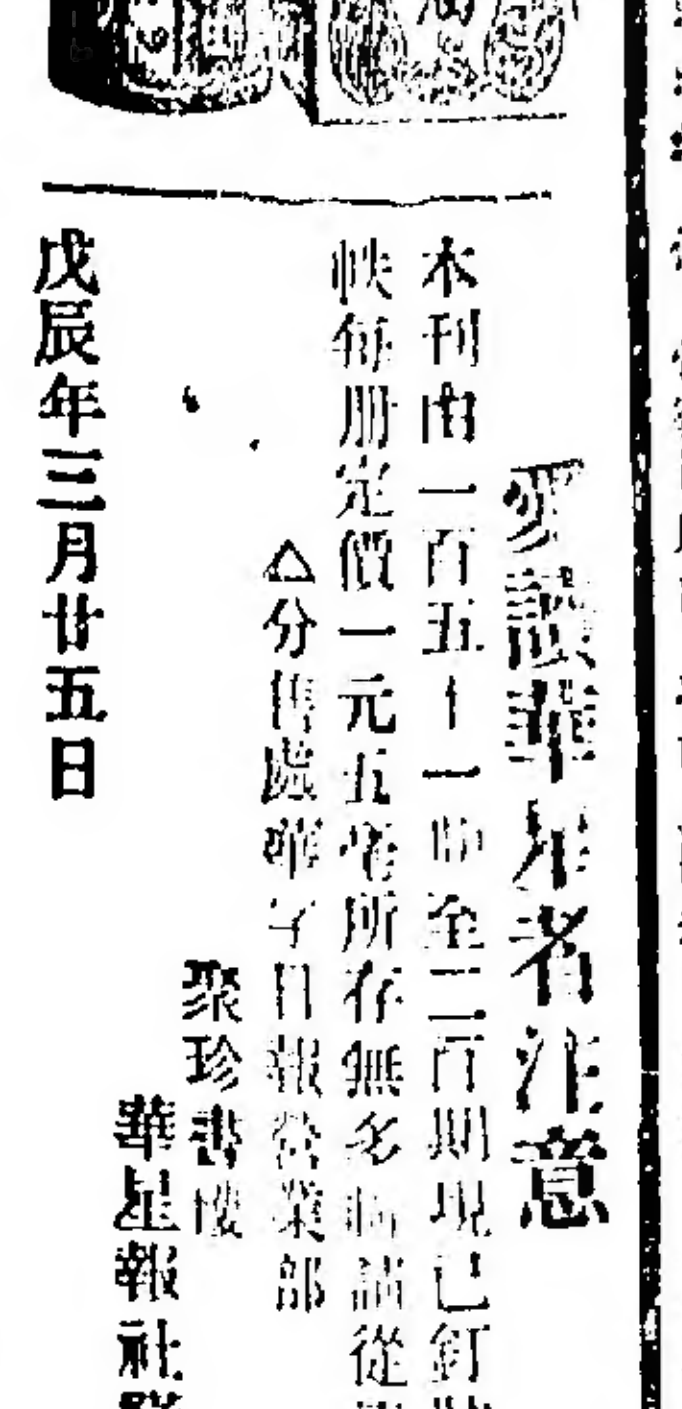 愛讀華星者注意
本刊由一百五十一期至二百期現已釘
帙每册定價一元五毫所存無多購請從
△分售處華字日報營業部
聚珍書樓
華星報社
戊辰年三月廿五日